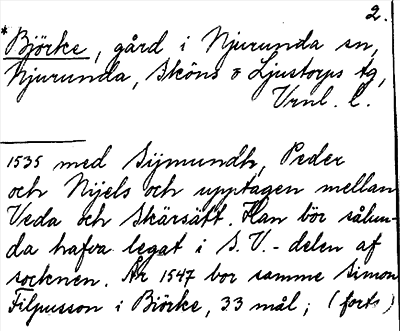 2.
* Björke, gård i Njurunda sn,
Njurunda, Sköns o Ljustorps tg,
Vrnl. l.
1535 med Sijmundh, Peder
och Nijels och upptagen mellan
Veda och Skärsätt. Han bör sålun-
da hafva legat i S.V.-delen af
socknen. År 1547 bor samme Simon
Filpusson i Biörke, 33 mål; (forts)